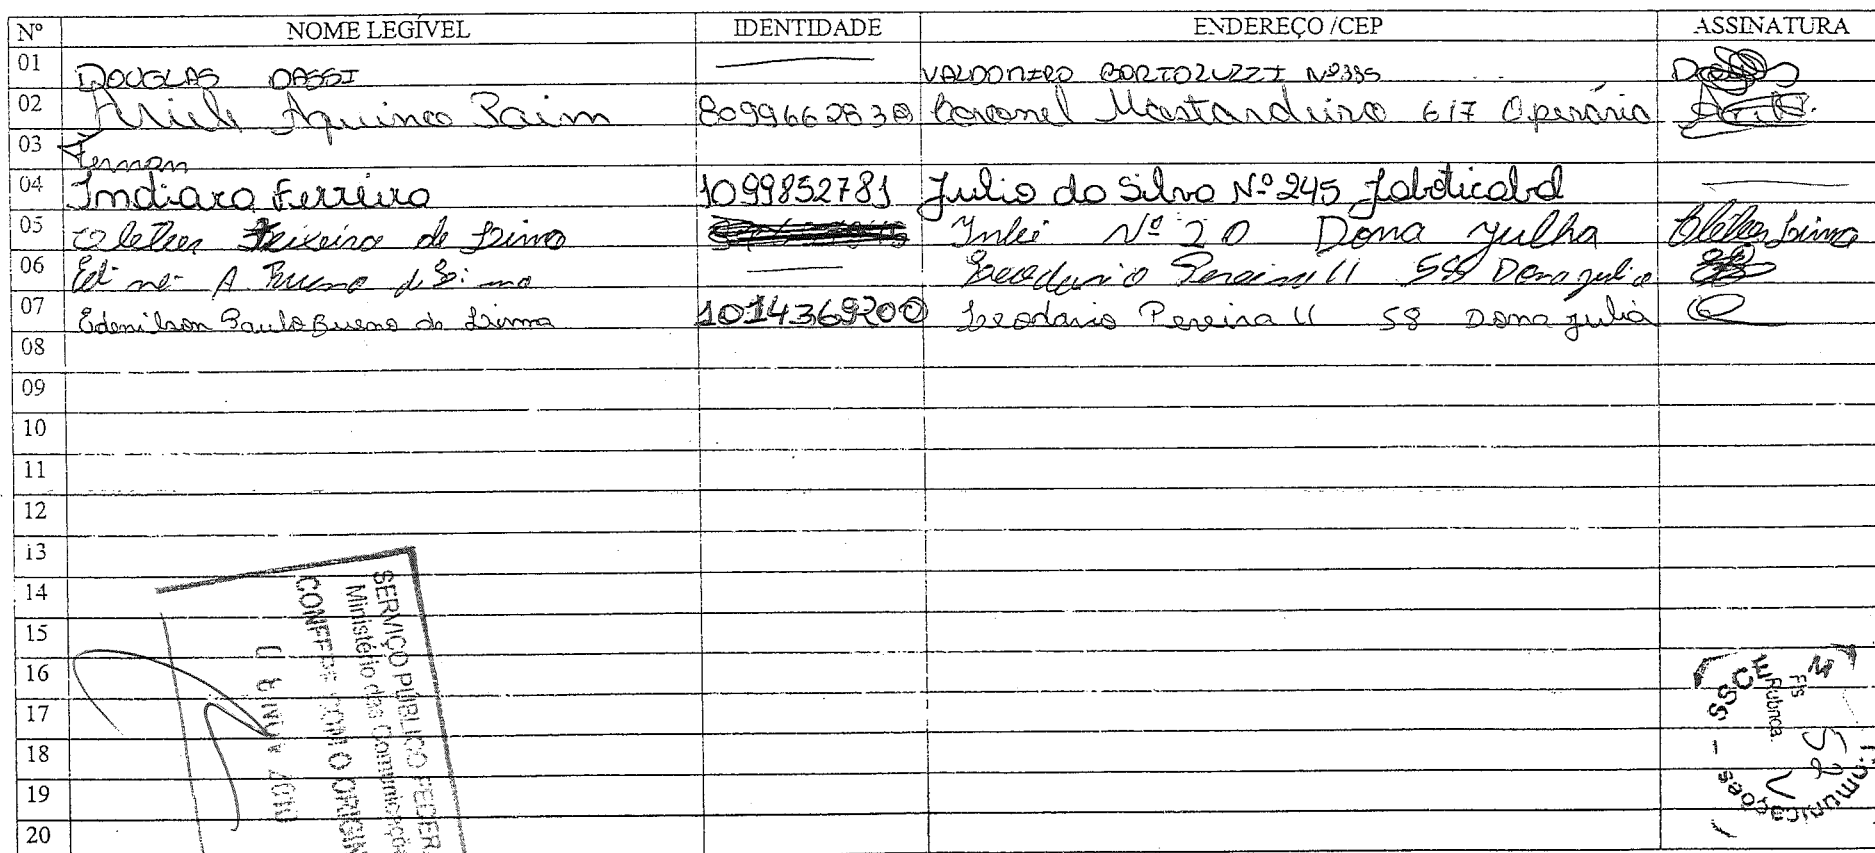 Nº NOME LEGÍVEL IDENTIDADE ENDEREÇO /CEP ASSINATURA
01 DOUGLAS DASSI VALDOMIRO BORTOLUZZI Nº335
02 Ariele Aquino Paim 8099662830 Coronel Mostardeiro 617 Operária
03 Fernan
04 Indiara Ferreira 1099852781 Julio da Silva Nº 245 Jaboticabal
05 Teixeira de Lima Nº 20 Dona Julha Lima
06 A. Bueno de Lima Pereira 11 Dona Julia
07 Edenilson Paulo Bueno de Lima 1014369200 Leodario Pereira 11 58 Dona Julia
08
09
10
11
12
13
14
15
16
17
18
19
20
SERVIÇO PÚBLICO FEDER
Ministério das Comunicaçõ
CONFERE COM O ORIGIN
Comunicações - SSCE
Fls 52
Rubrica